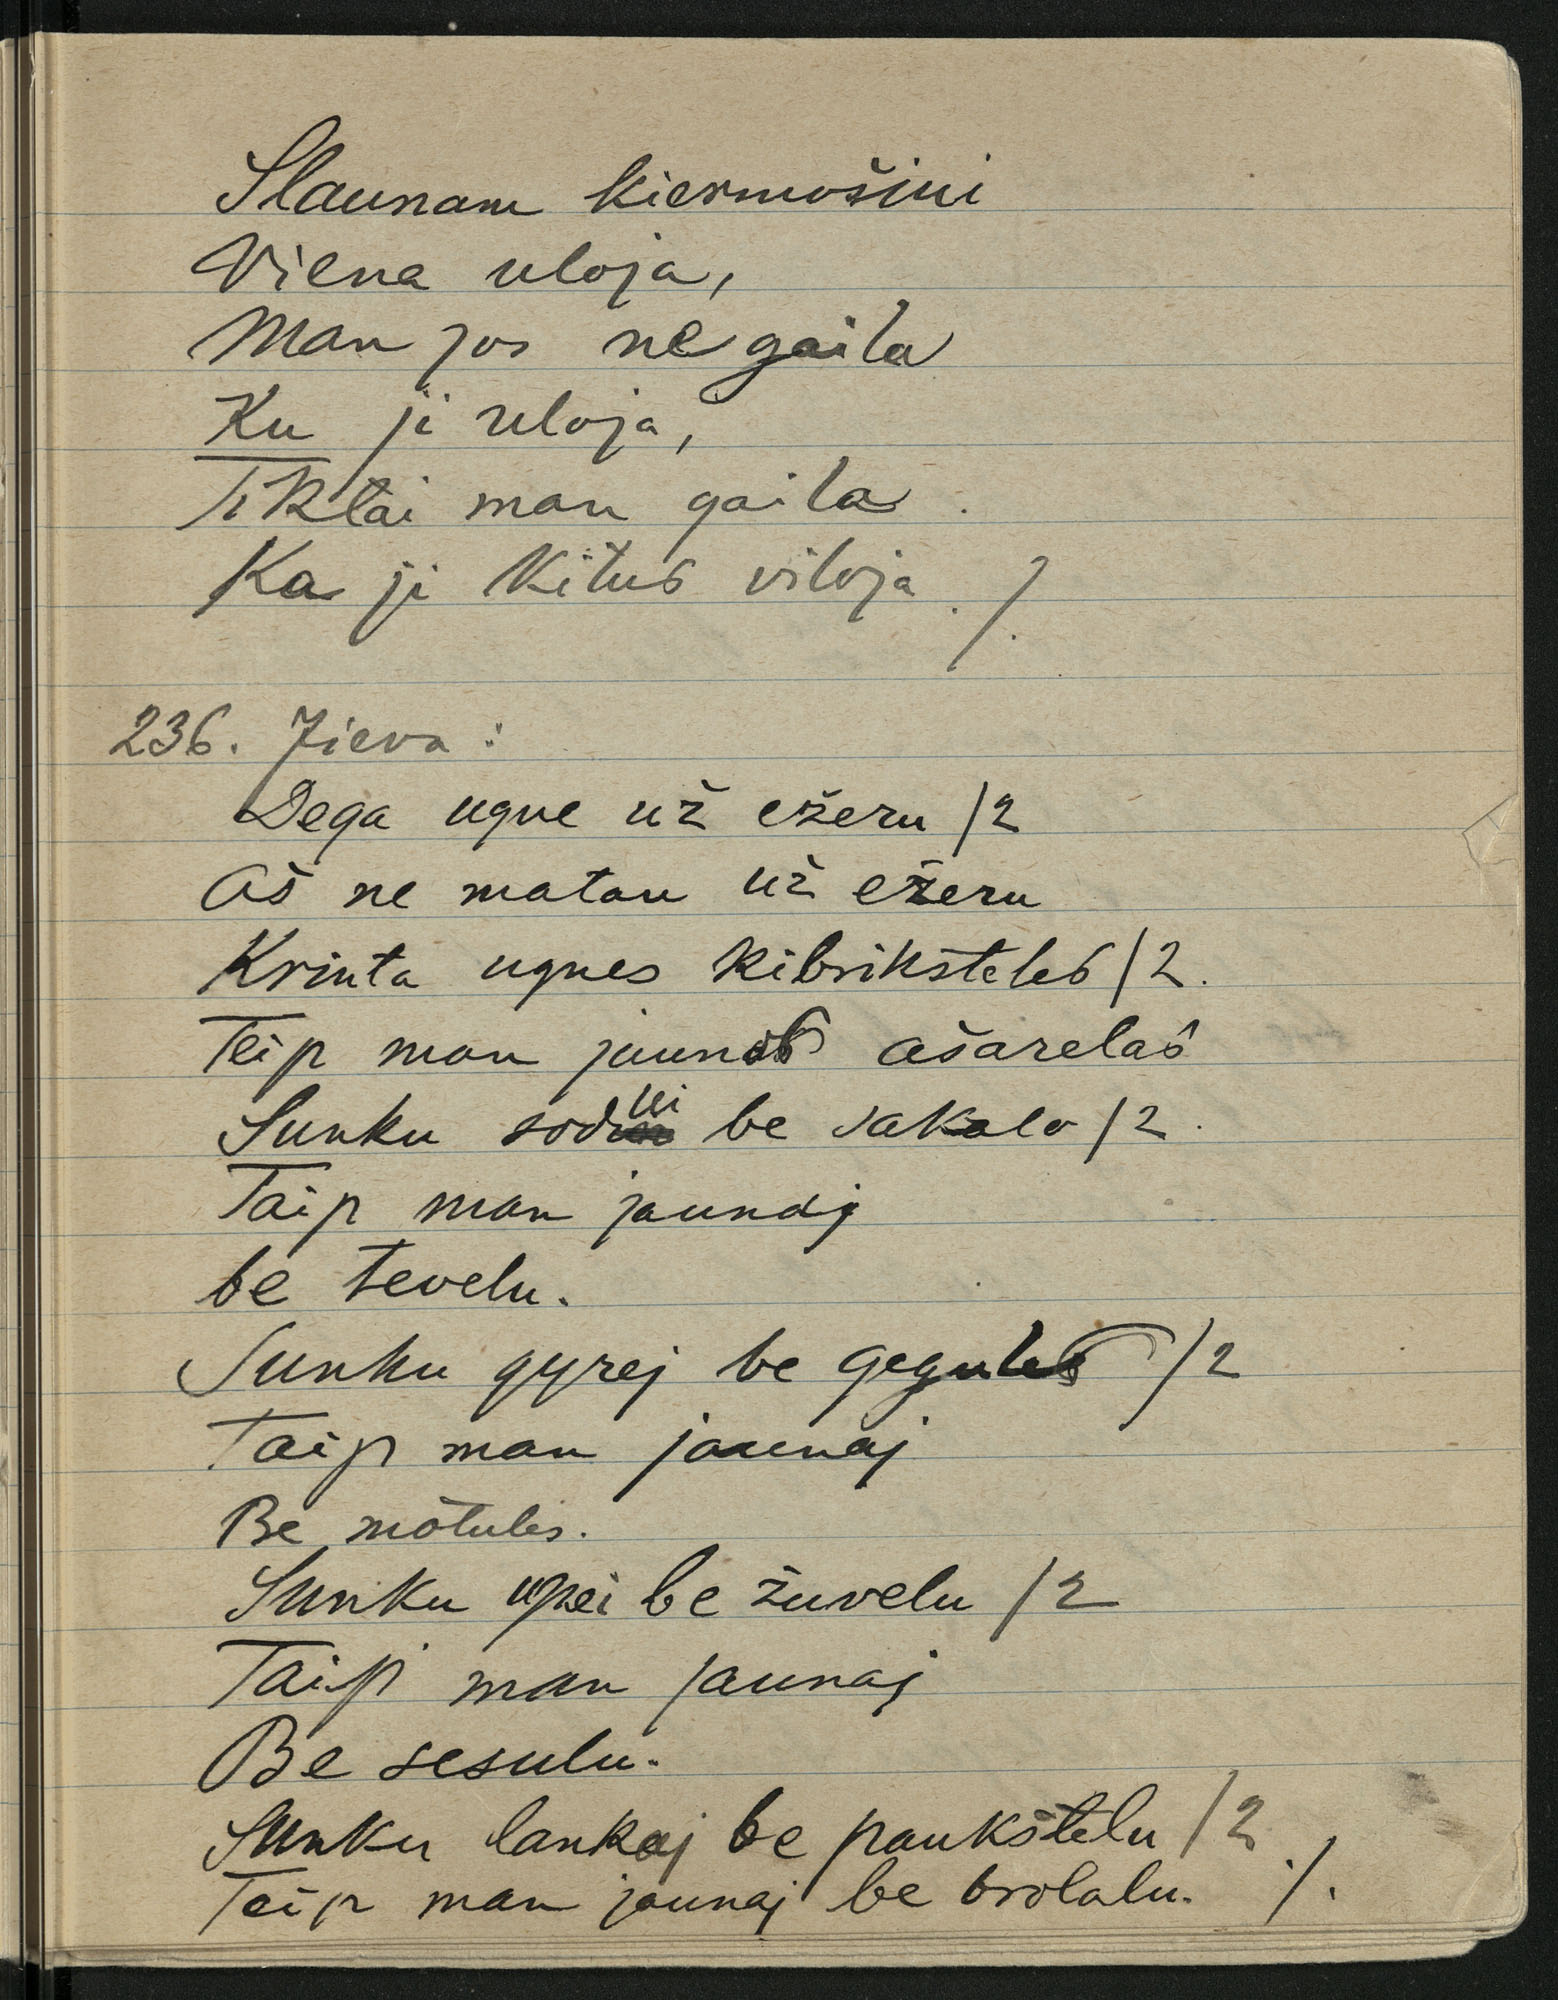 Slaunam kiermošiui
Viena uloja,
Man jos ne gaila
Ku ji uloja,
Tiktai man gaila
Ka ji kitus viloja ./.
236. Jieva:
Dega ugne už ežeru /2
Aš ne matau už ežeru
Krinta ugnes kibrikšteles /2.
Teip man jaunos ašarelas
Sunku sodui be sakalo /2.
Taip man jaunaj
be tevelu.
Sunku gyrej be gegules /2
Taip man jaunaj
Be motules.
Sunku upei be žuvelu /2
Taip man jaunaj
Be sesulu.
Sunku lankaj be paukštelu /2
Teip man jaunaj be brolalu. ./.